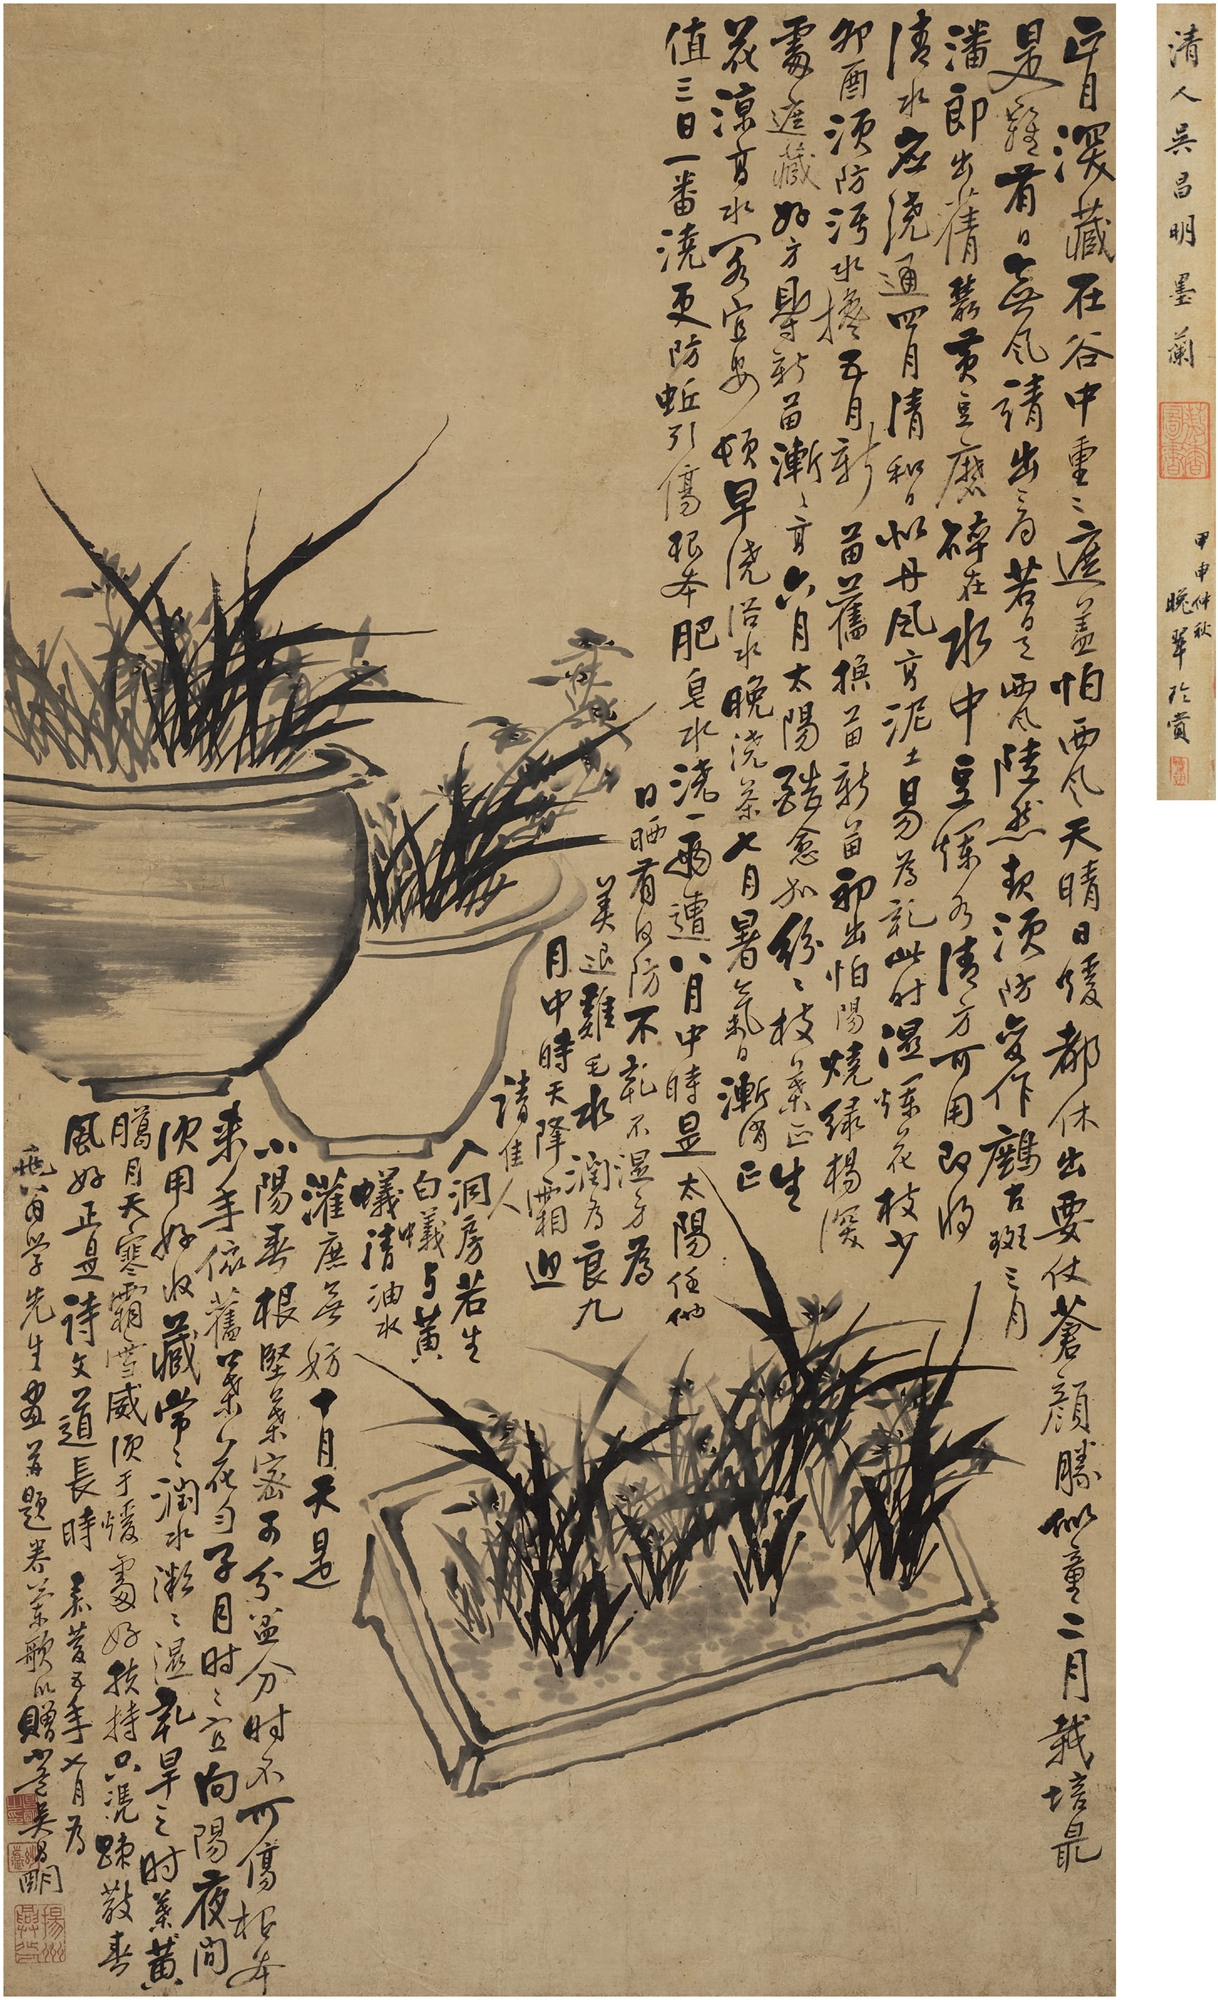 正月深藏在谷中重〻遮蓋怕西風天晴日煖都休出要仗蒼顏勝似童二月栽培最
是難有日無風請出房若是西風陡然起須防变作鷓古斑三月
潘郎出舊叢黄豆磨碎在水中豆爛水清方可用即將
清水应澆通四月清和日似丹風高泥土易為乾此时濕爛花枝少
卯酉須防污水攙五月新苗舊換苗新苗初出怕陽燒緑楊深
處遮藏好方得新苗漸〻高六月太陽酷愈加紛〻枝葉正生
花涼高水冷宜安頓早澆浴水晚澆茶七月暑氣日漸消正
值三日一番澆更防蚯引傷根本肥皂水澆一兩遭八月中時是太陽任他
日晒有何防不乾不濕方為
美退雞毛水潤為良九
月中時天降霜迎
請佳人
入洞房若生
白蟻与黄
蟻清油水
灌庶無妨十月天是
小陽春根堅葉密可分盆分时不可傷根本
来年依舊葉花勻子月时〻宜向陽夜间
須用好收藏常〻潤水漸〻濕乾旱之时葉黄
臈月天寒霜雪威須于煖處好扶持只憑踈散春
風好正是詩文道長時 嘉慶五年七月為
学先生画并題養蘭歌以贈 吴昌明
清人吳昌明墨蘭
甲申仲秋
晚翠珍賞